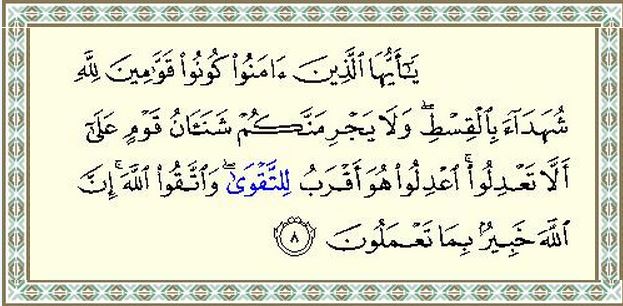 يَـٰٓأَيُّهَا ٱلَّذِينَ ءَامَنُوا۟ كُونُوا۟ قَوَّٰمِينَ لِلَّهِ
شُهَدَآءَ بِٱلْقِسْطِ ۖ وَلَا يَجْرِمَنَّكُمْ شَنَـَٔانُ قَوْمٍ عَلَىٰٓ
أَلَّا تَعْدِلُوا۟ ۚ ٱعْدِلُوا۟ هُوَ أَقْرَبُ لِلتَّقْوَىٰ ۖ وَٱتَّقُوا۟ ٱللَّهَ ۚ إِنَّ
ٱللَّهَ خَبِيرٌۢ بِمَا تَعْمَلُونَ ٨